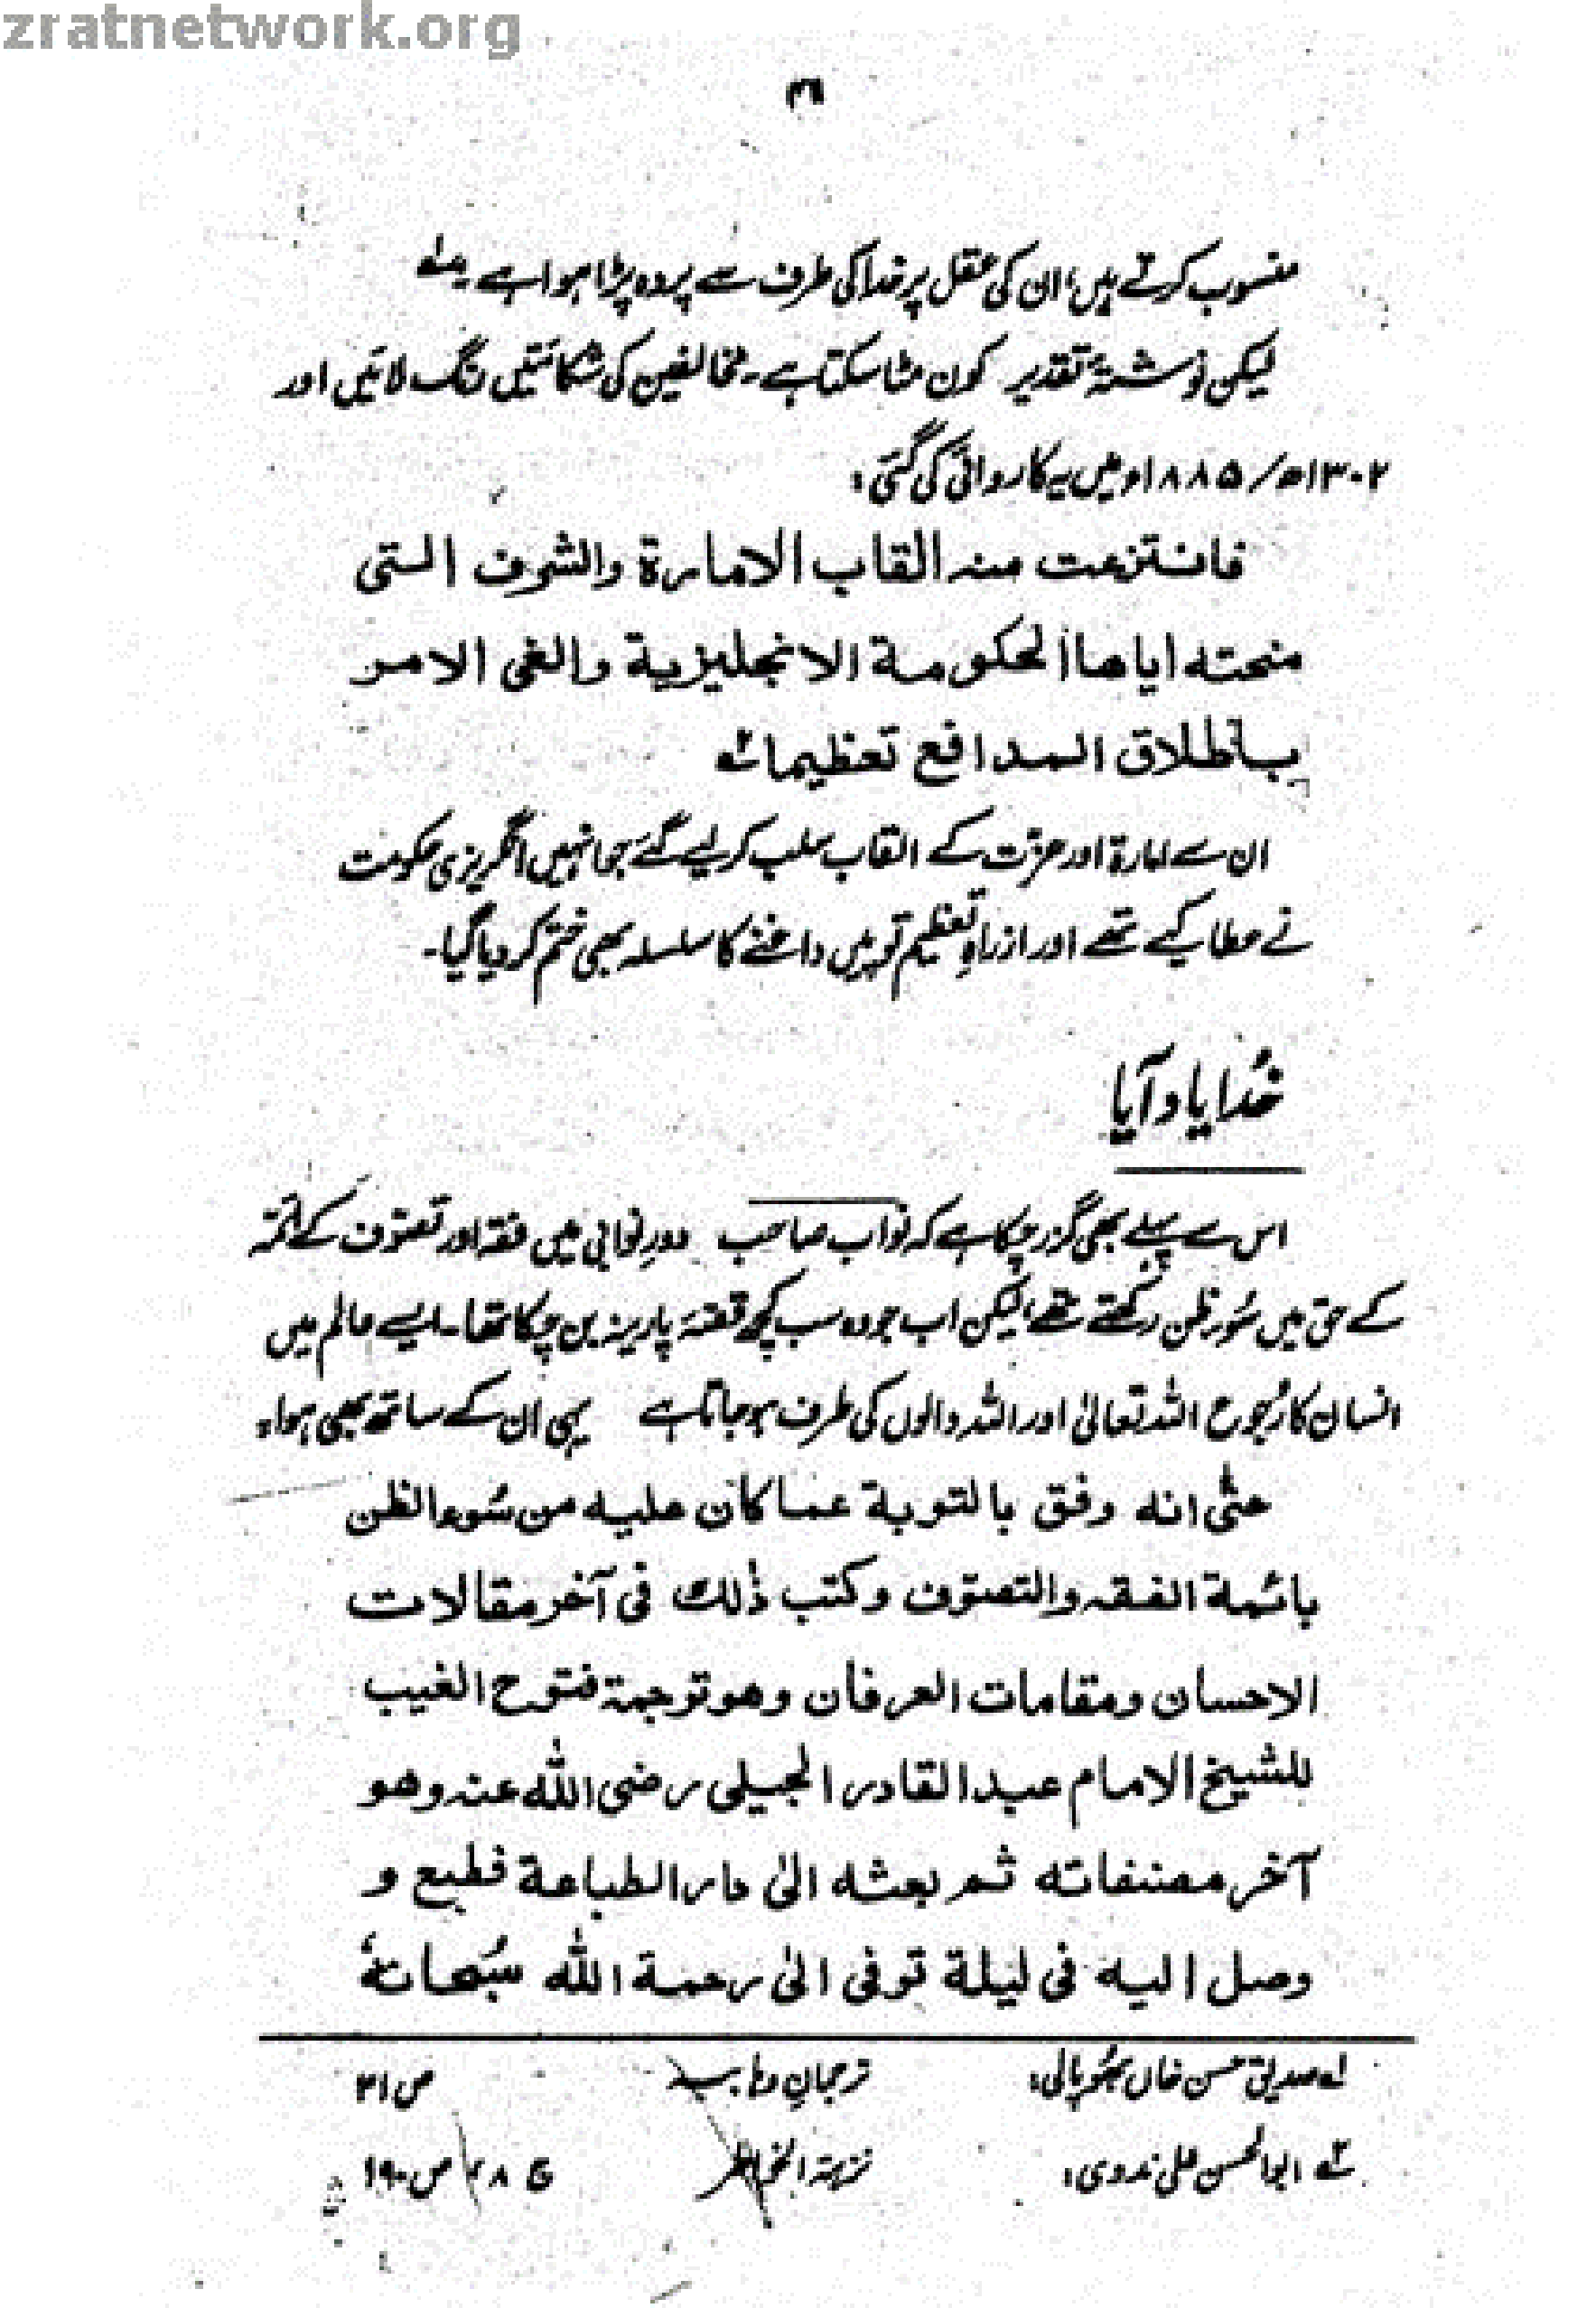 zratnetwork.org
۳۶
منسوب کرتے ہیں، ان کی عقل پر خدا کی طرف سے پردہ پڑا ہوا ہے۔ لہ
لیکن نوشتۂ تقدیر کون مٹا سکتا ہے۔ مخالفین کی شکائتیں رنگ لائیں اور
۱۳۰۲ھ/ ۱۸۸۵ء میں یہ کاروائی کی گئی:
فانتزعت منہ القاب الامارة والشرف التی
منحته ایاھا الحکومة الانجلیزیة والغی الامر
باطلاق المدافع تعظیما لہ
ان سے امارۃ اور عزّت کے القاب سلب کر لیے گئے جو انہیں انگریزی حکومت
نے عطا کیے تھے اور ازراہِ تعظیم توپیں داغنے کا سلسلہ بھی ختم کر دیا گیا۔
خُدا یاد آیا
اس سے پہلے بھی گزر چکا ہے کہ نواب صاحب دورِ نوابی میں فقہ اور تصوّف کے ائمّہ
کے حق میں سُوء ظن رکھتے تھے، لیکن اب جو وہ سب کچھ قصّۂ پارینہ بن چکا تھا۔ ایسے عالم میں
انسان کا رُجوع اللہ تعالیٰ اور اللہ والوں کی طرف ہو جاتا ہے یہی ان کے ساتھ بھی ہوا:
حتّٰی انه وفق بالتوبة عما کان علیه من سُوء الظن
بائمة الفقہ والتصوّف وکتب ذٰلک فی آخر مقالات
الاحسان ومقامات العرفان وھو ترجمة فتوح الغیب
للشیخ الامام عبد القادر الجیلی رضی اللّٰه عنہ وھو
آخر مصنفاته ثم بعثه الیٰ دار الطباعة فطبع و
وصل الیه فی لیلة توفی الیٰ رحمة اللّٰه سُبحانهٗ
لہ صدیق حسن خاں بھوپالی: ترجمانِ وہابیہ ص ۳۱
۲ہ ابوالحسن علی ندوی: نزہۃ الخواطر ج ۸، ص ۱۹۰